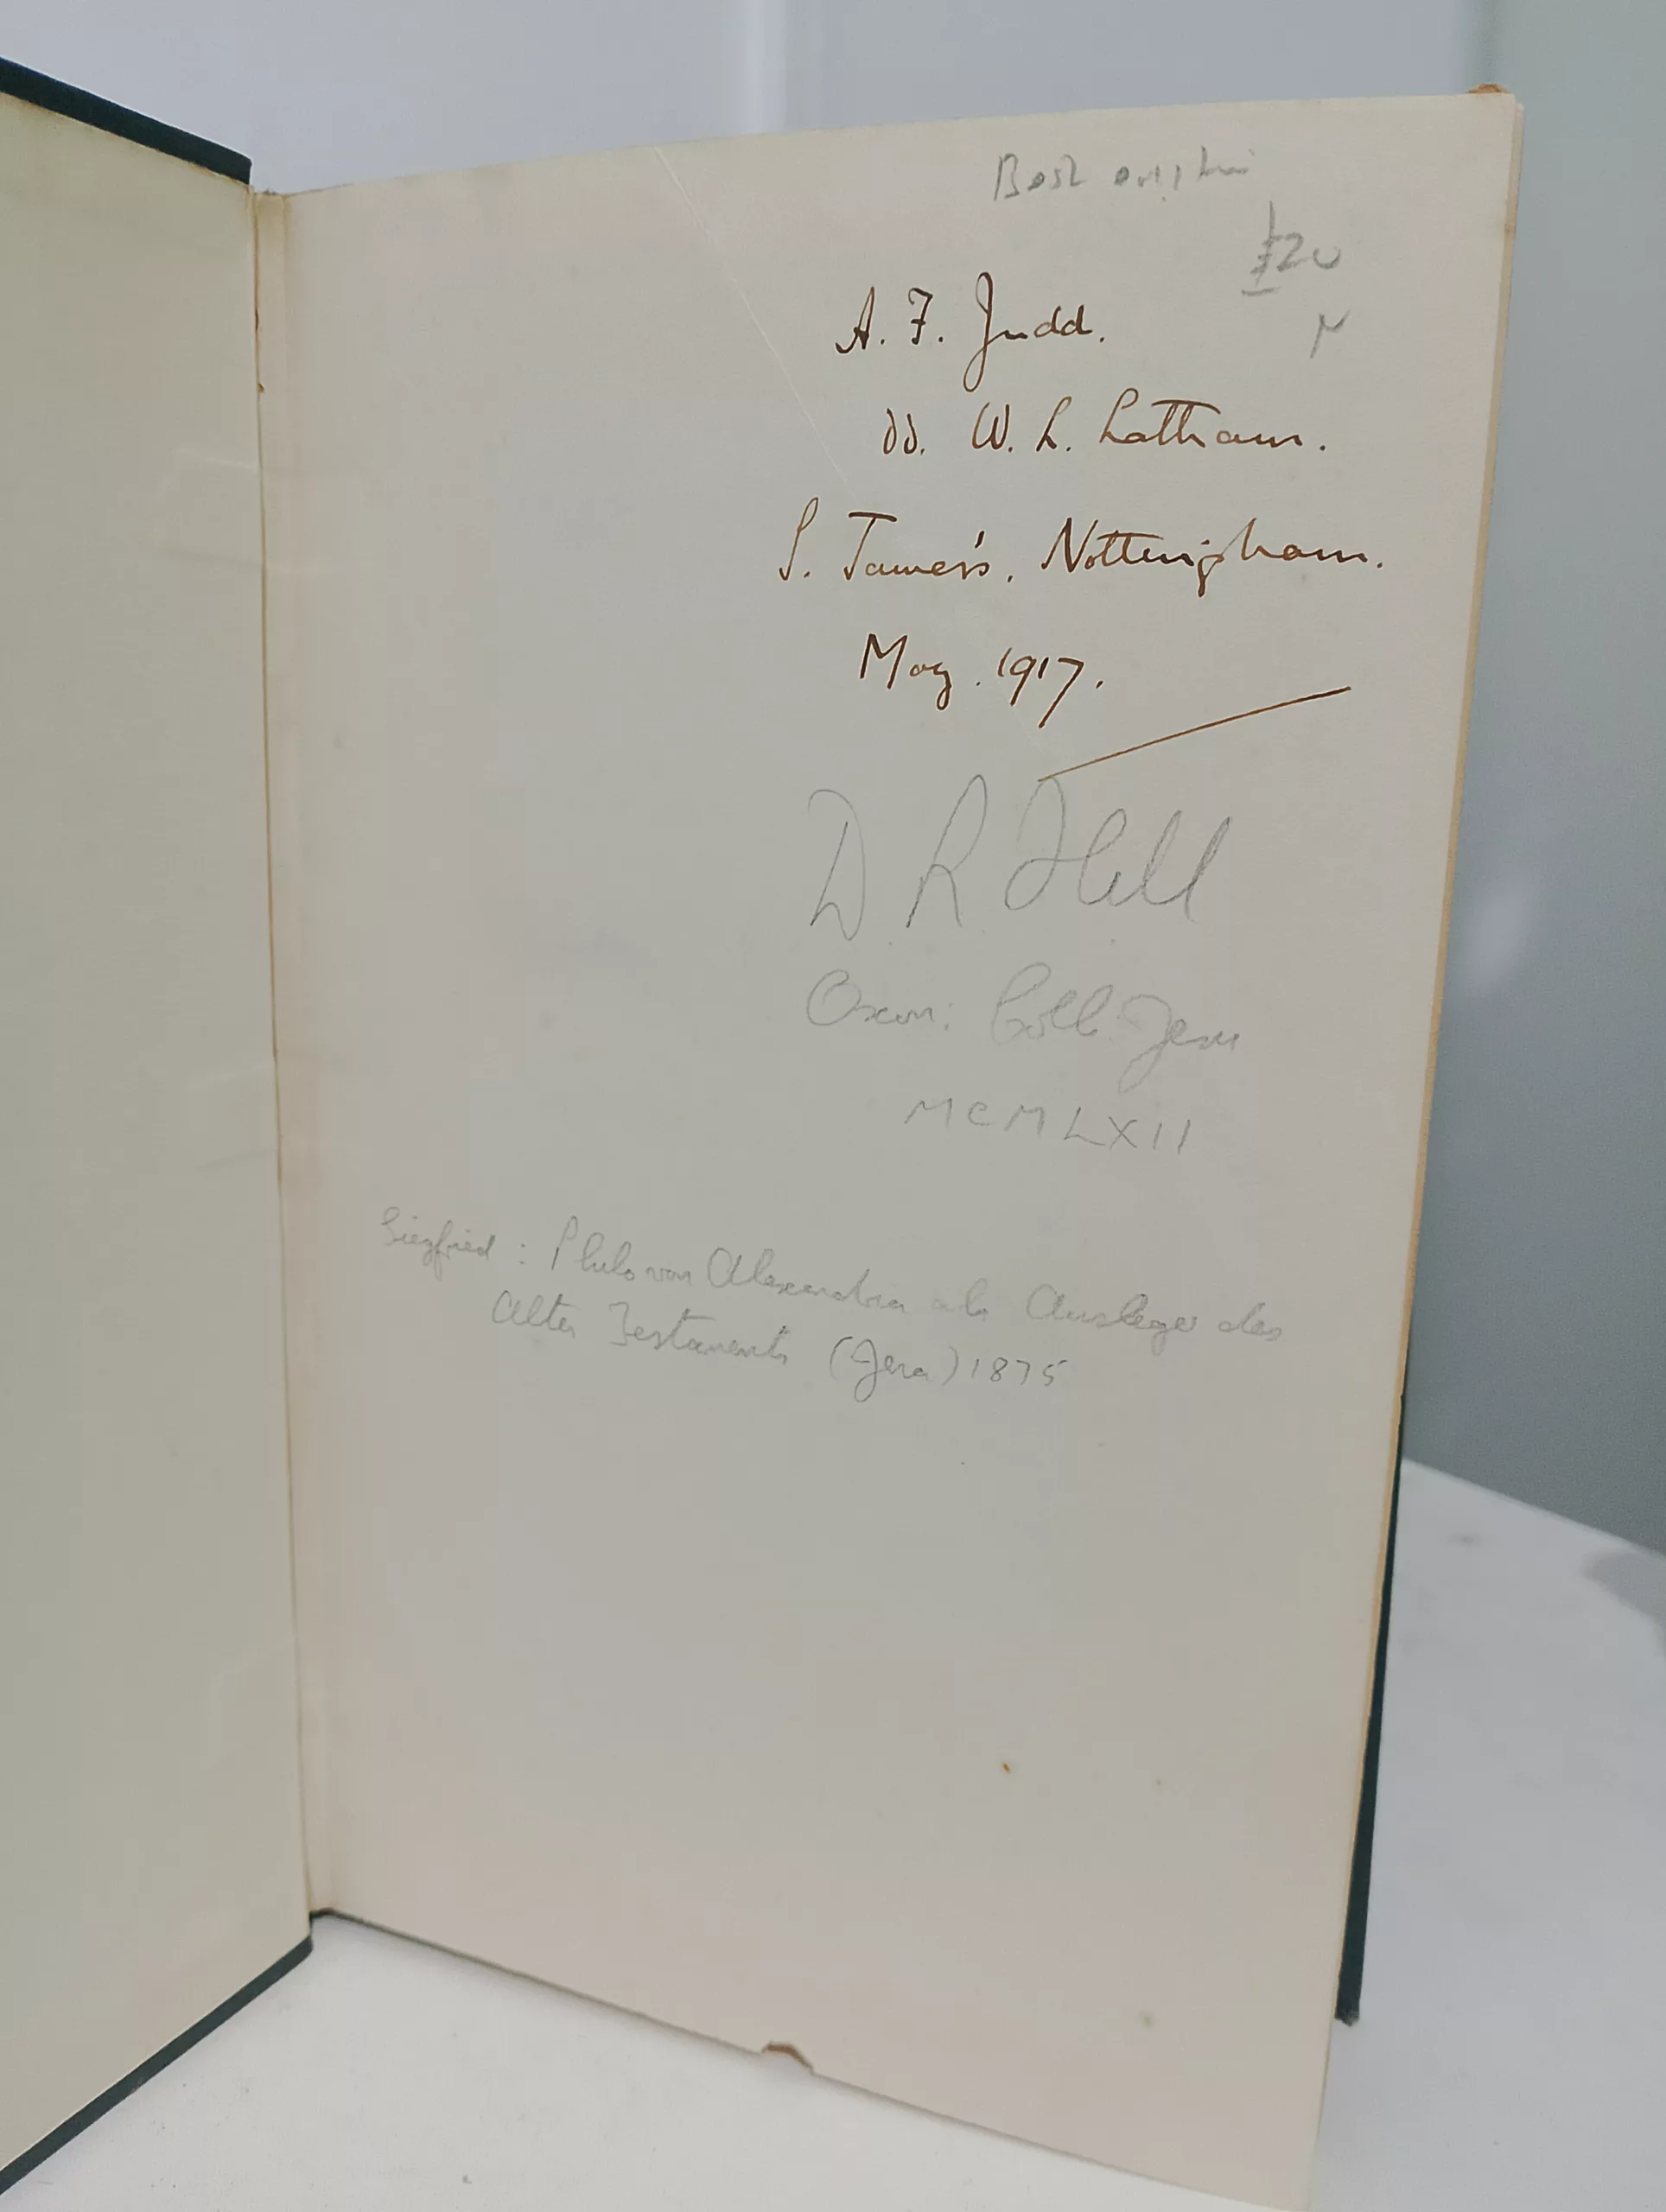 Best
£20
A. F. Judd.
dd. W. L. Latham.
S. James's, Nottingham.
May. 1917.
D R Hill
Oxon: Coll. Jesu
MCMLXII
Siegfried: Philo von Alexandria als Ausleger des
Alten Testaments (Jena) 1875